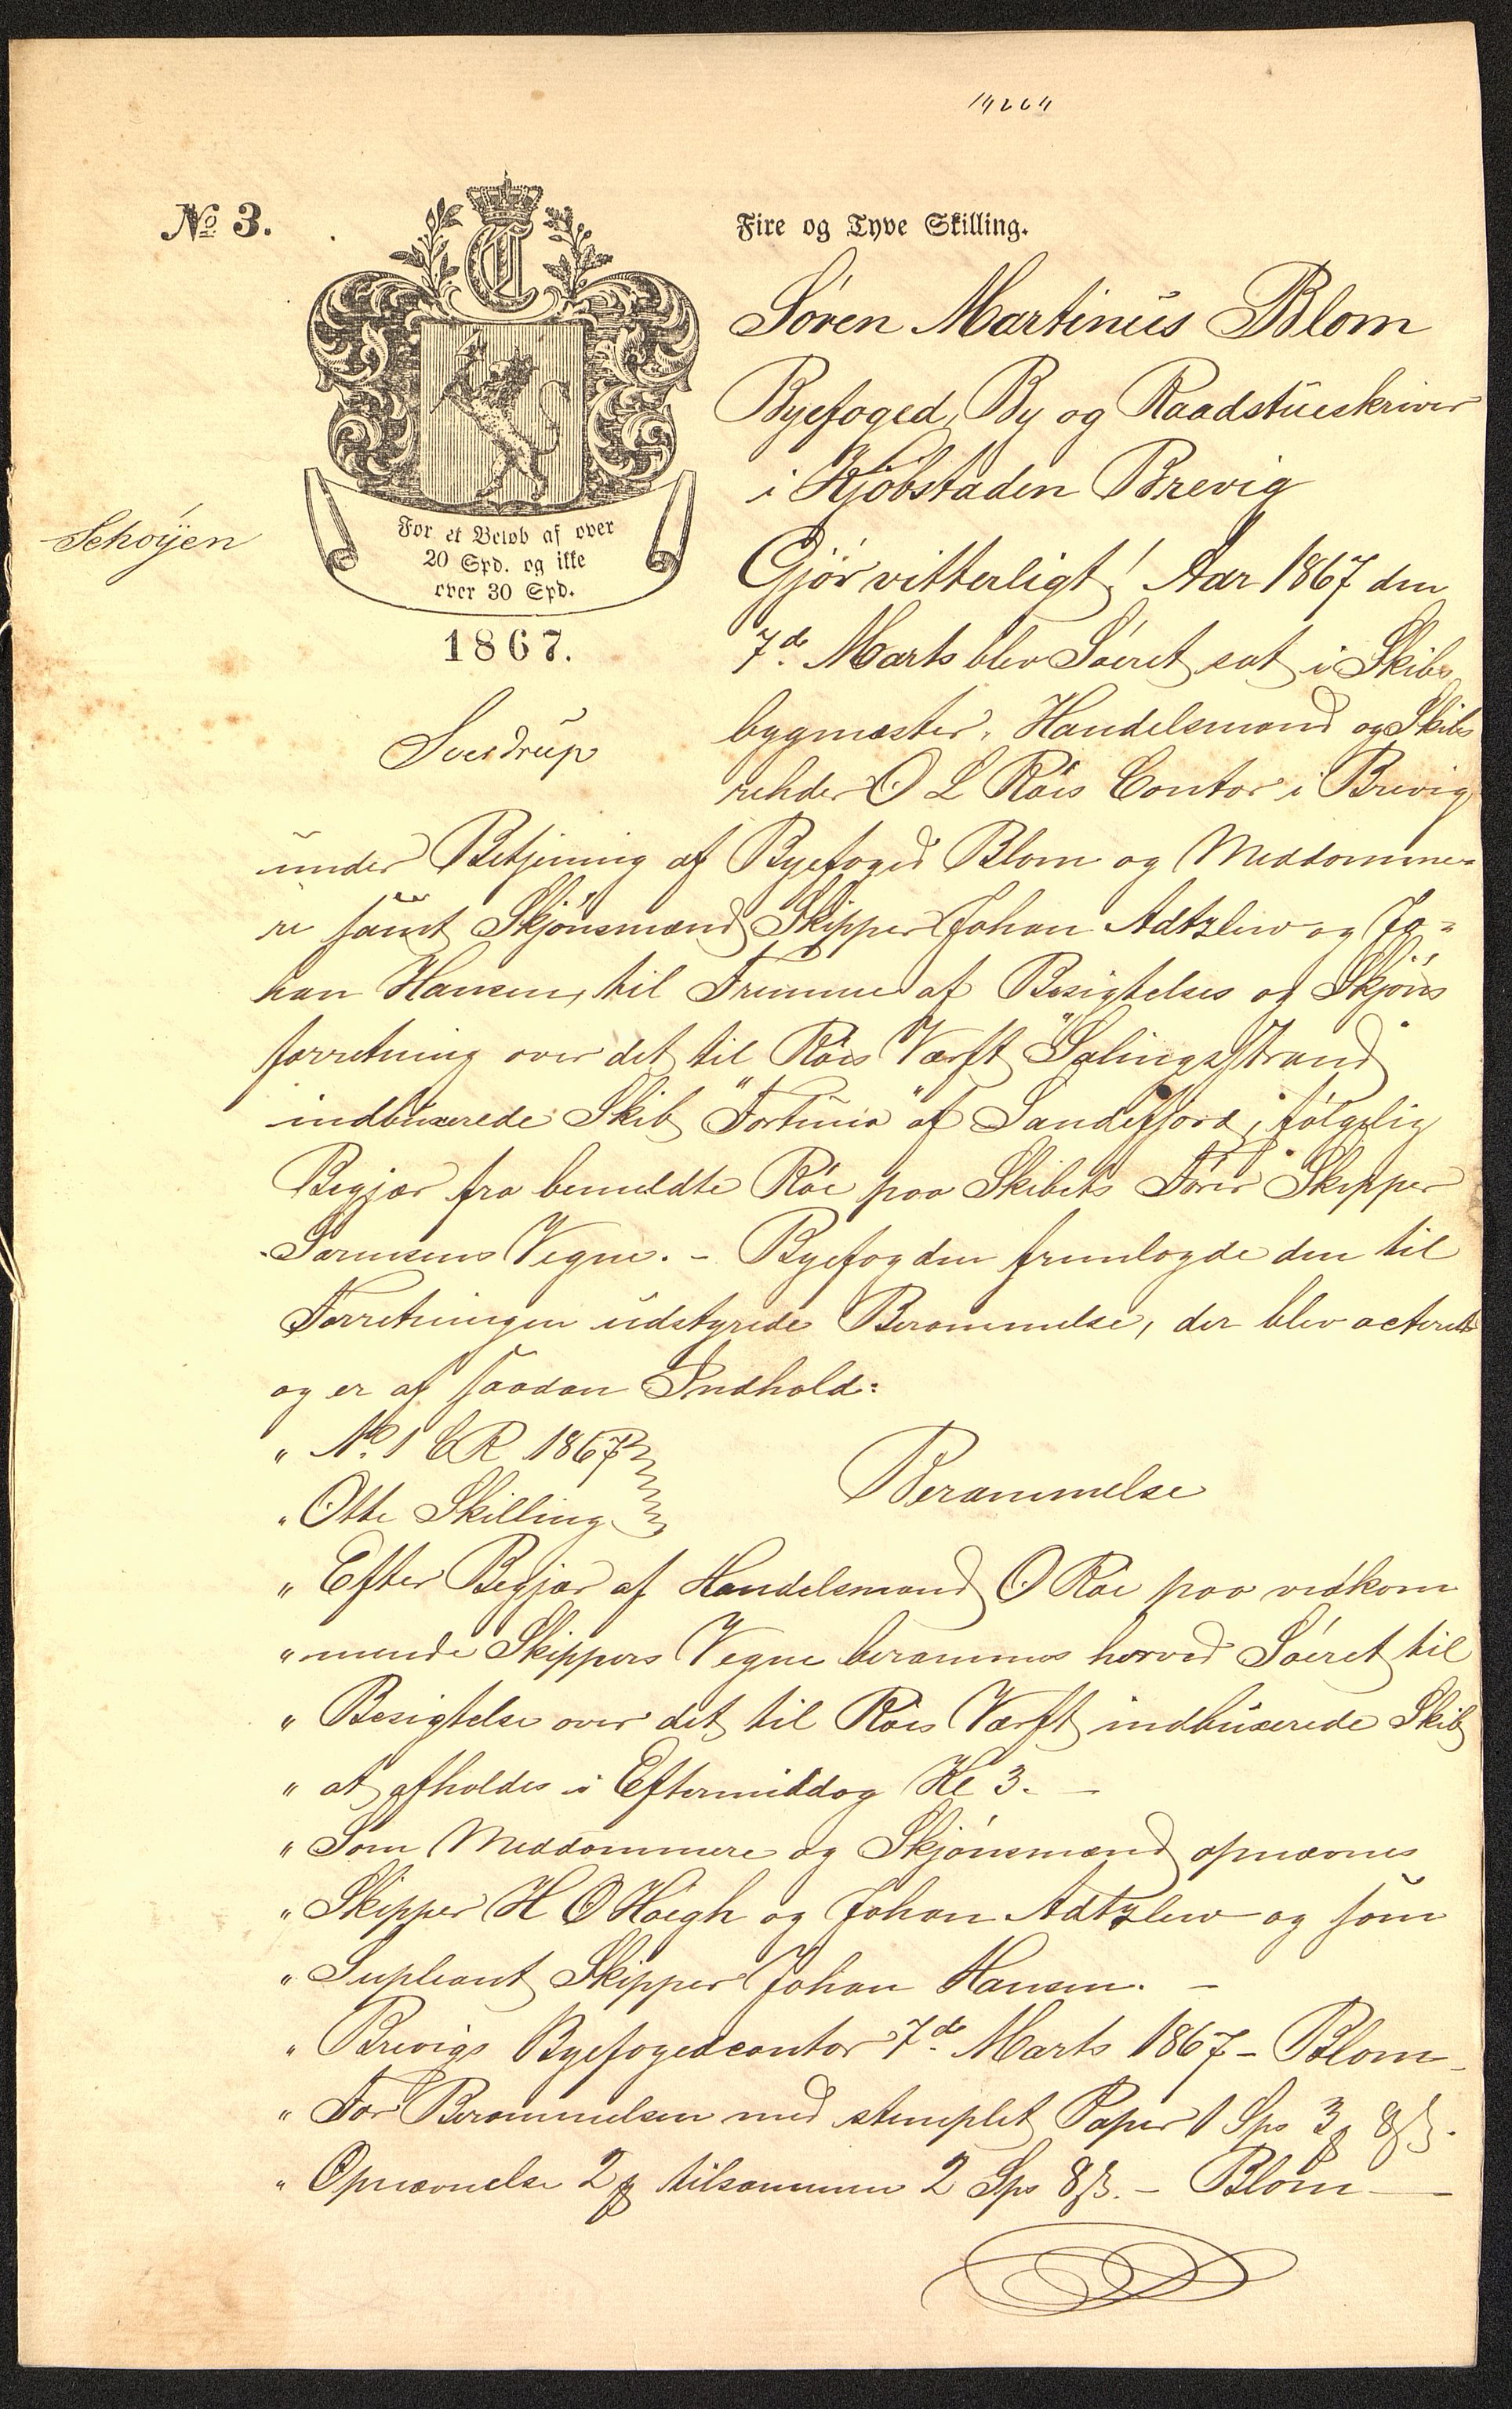 14264
No 3.
Fire og Tyve Skilling.
C
For et Beløb af over
20 Spd. og ikke
over 30 Spd.
1867.
Schøyen
Sverdrup
Søren Martinus Blom
Byefoged, By og Raadstueskriver
i Kjøbstaden Brevig
Gjør vitterligt! Aar 1867 den
7de Marts blev Søret sat i Skibs
bygmester, Handelsmand og Skibs
rehder O L Røes Contor i Brevig
under Betjening af Byefoged Blom og Meddomme-
re samt Skjønsmænd Skipper Johan Adtzlew og Jo-
han Hansen, til Fremme af Besigtelses og Skjøns
forretning over det til Røes Værft "Salingsstrand"
indbuxerede Skib "Fortuna" af Sandefjord, følgelig
Begjær fra bemeldte Røe paa Skibets Fører Skipper
Sørensens Vegne. - Byefogden fremlagde den til
Forretningen udstyrede Berammelse, der blev acteret
og er af saadan Indhold:
" No. 1 CR 1867
" Otte Skilling
Berammelse
" Efter Begjær af Handelsmand O Røe paa vedkom
" mende Skippers Vegne berammes herved Søret til
" Besigtelse over det til Røes Værft indbuxerede Skib
" at afholdes i Eftermiddag Kl 3. -
" Som Meddommere og Skjønsmænd opnævnes
" Skipper H O Høegh og Johan Adtzlew og som
" Supleant Skipper Johan Hansen. -
" Brevigs Byefogedcontor 7de Marts 1867 - Blom -
" For Berammelsen med stemplet Papir 1 Sps 3 8ß.
" Opnævnelse 2 tilsammen 2 Sps 8ß. - Blom -